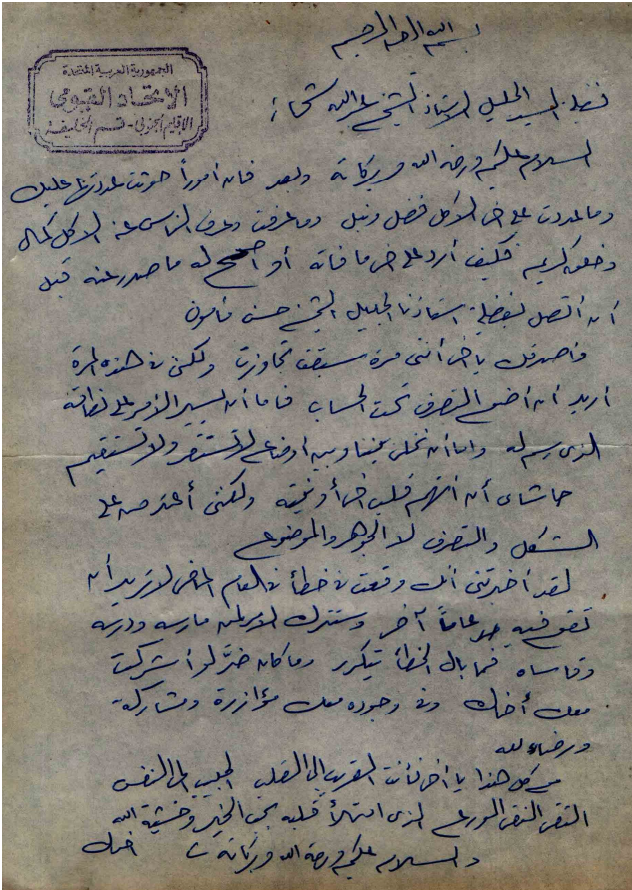 بسم الله الرحمن الرحيم
الجمهورية العربية المتحدة
الاتحاد القومى
الإقليم الجنوبى - قسم الخليفة
فضيلة السيد الجليل الأستاذ الشيخ عبد الله
السلام عليكم ورحمة الله وبركاته وبعد فان أموراً حدثت عليك
وما عددت على أخى الأكل فضل ونبل وما عرفت وعرف الناس عنه الا كل كمال
وخلق كريم فكيف أرد على أخى ما فاته أو أصحح له ما صدر عنه قبل
أن أتصل بفضيلة استاذنا الجليل الشيخ حسن مأمون
وأصدقك يا أخى أننى مرة سبقت تجاوزت ولكنى فى هذه المرة
أريد أن أضع التصرف تحت الحساب فاما أن يسير الأمر على نطاقه
الذى رسم له واما أن نخلى بيننا وبين أوضاع لا تستقر ولا تستقيم
حاشاى أن أتهم قلب أخى أو نيته ولكننى أعترض على
الشكل والتصرف لا الجوهر والموضوع
لقد أخبرتنى أنك وقعت فى خطأ فى العام الماضى لا تريد أن
تقع فيه عاماً آخر وستترك الأمر لمن مارسه ودرسه
وقاساه فما بال الخطأ يتكرر وما كان ضرك لو أشركت
معك أخاك وفى وجوده معك مؤازرة ومشاركة
ورضاء لله
مع كل هذا يا أخى فأنت القريب إلى القلب الحبيب إلى النفس
التقى النقى الورع الذى امتلأ قلبه بحب الخير وخشية الله
والسلام عليكم ورحمة الله وبركاته أخوك